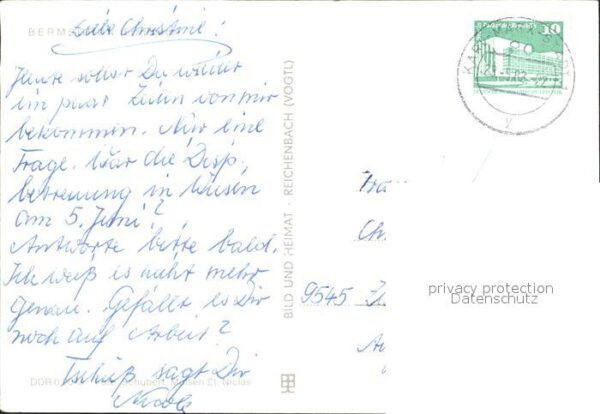 BERMS
Liebe Christine!
Heute sollst Du wieder
ein paar Zeilen von mir
bekommen. Nur eine
Frage. War die Disp.
betreuung in
am 5. Juni?
Antworte bitte bald.
Ich weiß es nicht mehr
genau. Gefällt es Dir
noch auf Arbeit?
Tschüß sagt Dir
Nicole
DDR Schubert, St. Niclas
BILD UND HEIMAT · REICHENBACH (VOGTL)
10
KARL-MARX-STADT 1
y
9545
privacy protection
Datenschutz